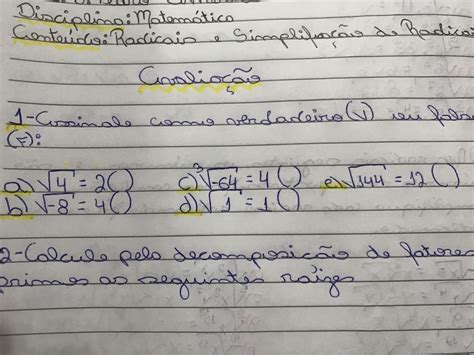 Disciplina: Matemática
Conteúdo: Radicais e Simplificação de Radicai
Avaliação
1-Assinale como verdadeiro (V) ou fals
(F):
a) √4 = 2 ( ) c) ³√-64 = 4 ( ) e) √144 = 12 ( )
b) √-8 = 4 ( ) d) √1 = 1 ( )
2-Calcule pela decomposição de fatores
primos as seguintes raízes